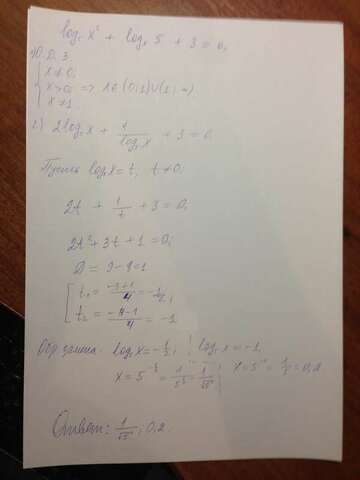 log₅ x² + logₓ 5 + 3 = 0;
1) О.D.З.
{ x ≠ 0;
x > 0; => x ∈ (0; 1) ∪ (1; ∞)
x ≠ 1
2) 2log₅ x + 1/log₅ x + 3 = 0
Пусть log₅ x = t, t ≠ 0,
2t + 1/t + 3 = 0;
2t² + 3t + 1 = 0;
D = 9 - 8 = 1
[ t₁ = (-3+1)/4 = -1/2;
t₂ = (-3-1)/4 = -1
Обр замена: log₅ x = -1/2; log₅ x = -1,
x = 5^(-1/2) = 1/5^(1/2) = 1/√5; x = 5^(-1) = 1/5 = 0,2
Ответ: 1/√5; 0,2.